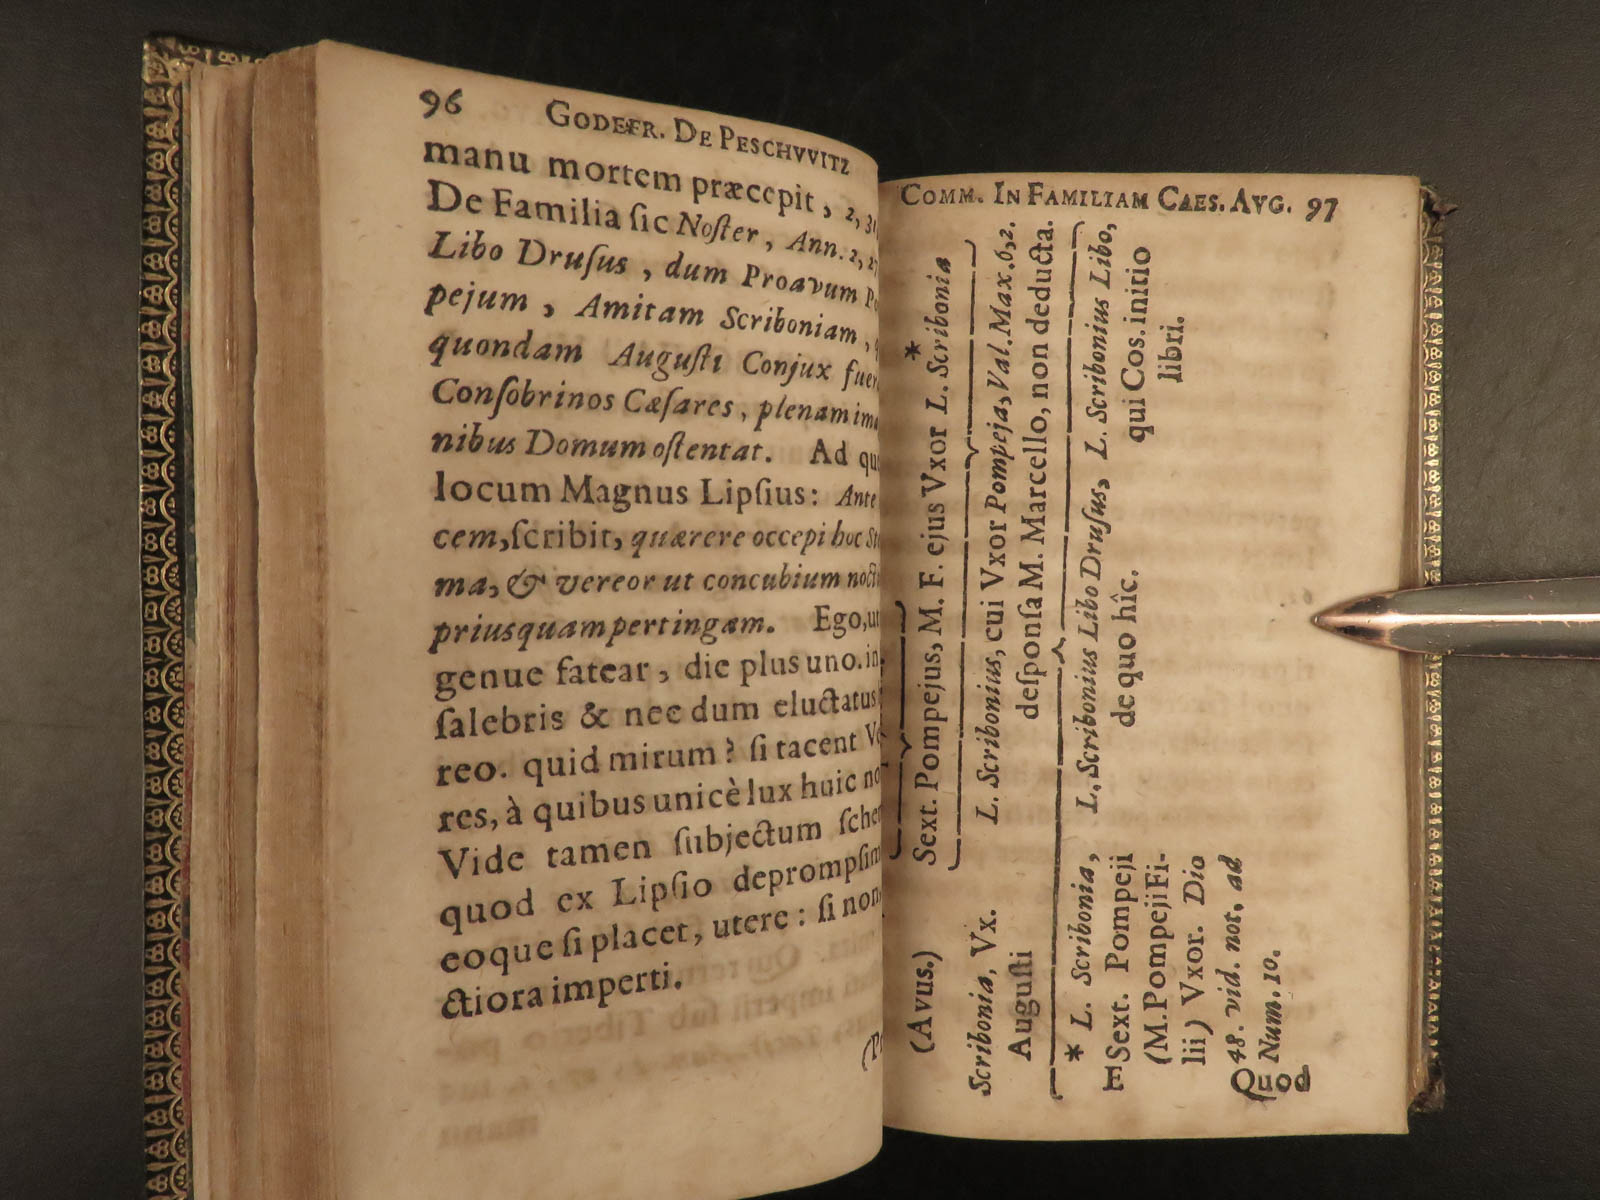 96 GODEFR. DE PESCHVVITZ
manu mortem præcepit, 2, 31,
De Familia ſic Noſter, Ann. 2, 27
Libo Druſus, dum Proavum
pejum, Amitam Scriboniam,
quondam Auguſti Conjux
Conſobrinos Cæſares, plenam
nibus Domum oſtentat. Ad
locum Magnus Lipſius: Ante
cem, ſcribit, quærere occepi hoc
ma, & vereor ut concubium
priusquam pertingam. Ego, ut
genue fatear, die plus uno. in
ſalebris & nec dum eluctatus
reo. quid mirum? ſi tacent
res, à quibus unicè lux huic
Vide tamen ſubjectum
quod ex Lipſio
eoque ſi placet, utere: ſi non
ctiora imperti.
COMM. IN FAMILIAM CAES. AVG. 97
(Avus.)
Scribonia, Vx.
Auguſti
Sext. Pompejus, M. F. ejus Vxor L. Scribonia *
L. Scribonius, cui Vxor Pompeja, Val. Max. 6, 2.
deſponſa M. Marcello, non deducta.
L. Scribonius Libo Druſus,
de quo hîc.
L. Scribonius Libo,
qui Cos. initio
libri.
* L. Scribonia,
Sext. Pompeji
(M. Pompeji Fi-
lii) Vxor. Dio
48. vid. not. ad
Num. 10.
Quod